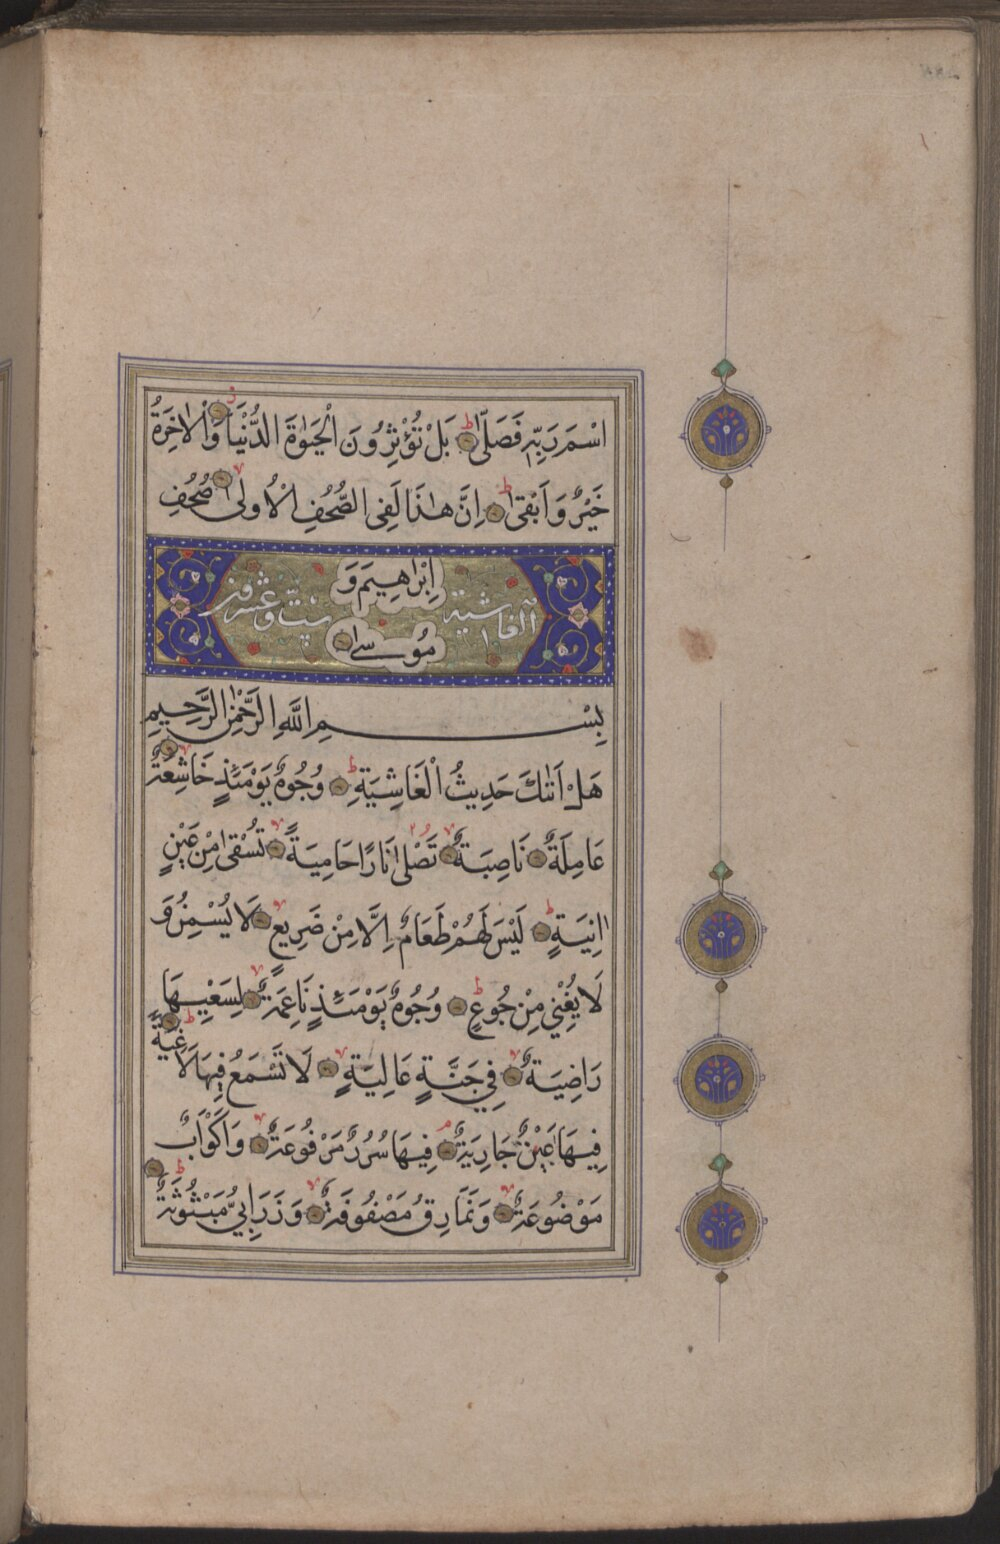 اسْمَ رَبِّهٖ فَصَلّٰى بَلْ تُؤْثِرُونَ الْحَيٰوةَ الدُّنْيَا وَالْاٰخِرَةُ
خَيْرٌ وَاَبْقٰى اِنَّ هٰذَا لَفِى الصُّحُفِ الْاُولٰى صُحُفِ
اِبْرٰاهِيمَ وَ
الغاشية ست وعشرون
مُوسٰى
بِسْمِ اللّٰهِ الرَّحْمٰنِ الرَّحِيمِ
هَلْ اَتٰىكَ حَدِيثُ الْغَاشِيَةِ وُجُوهٌ يَوْمَئِذٍ خَاشِعَةٌ
عَامِلَةٌ نَاصِبَةٌ تَصْلٰى نَارًا حَامِيَةً تُسْقٰى مِنْ عَيْنٍ
اٰنِيَةٍ لَيْسَ لَهُمْ طَعَامٌ اِلَّا مِنْ ضَرِيعٍ لَا يُسْمِنُ وَ
لَا يُغْنِي مِنْ جُوعٍ وُجُوهٌ يَوْمَئِذٍ نَاعِمَةٌ لِسَعْيِهَا
رَاضِيَةٌ فِي جَنَّةٍ عَالِيَةٍ لَا تَسْمَعُ فِيهَا لَاغِيَةً
فِيهَا عَيْنٌ جَارِيَةٌ فِيهَا سُرُرٌ مَرْفُوعَةٌ وَاَكْوَابٌ
مَوْضُوعَةٌ وَنَمَارِقُ مَصْفُوفَةٌ وَزَرَابِيُّ مَبْثُوثَةٌ